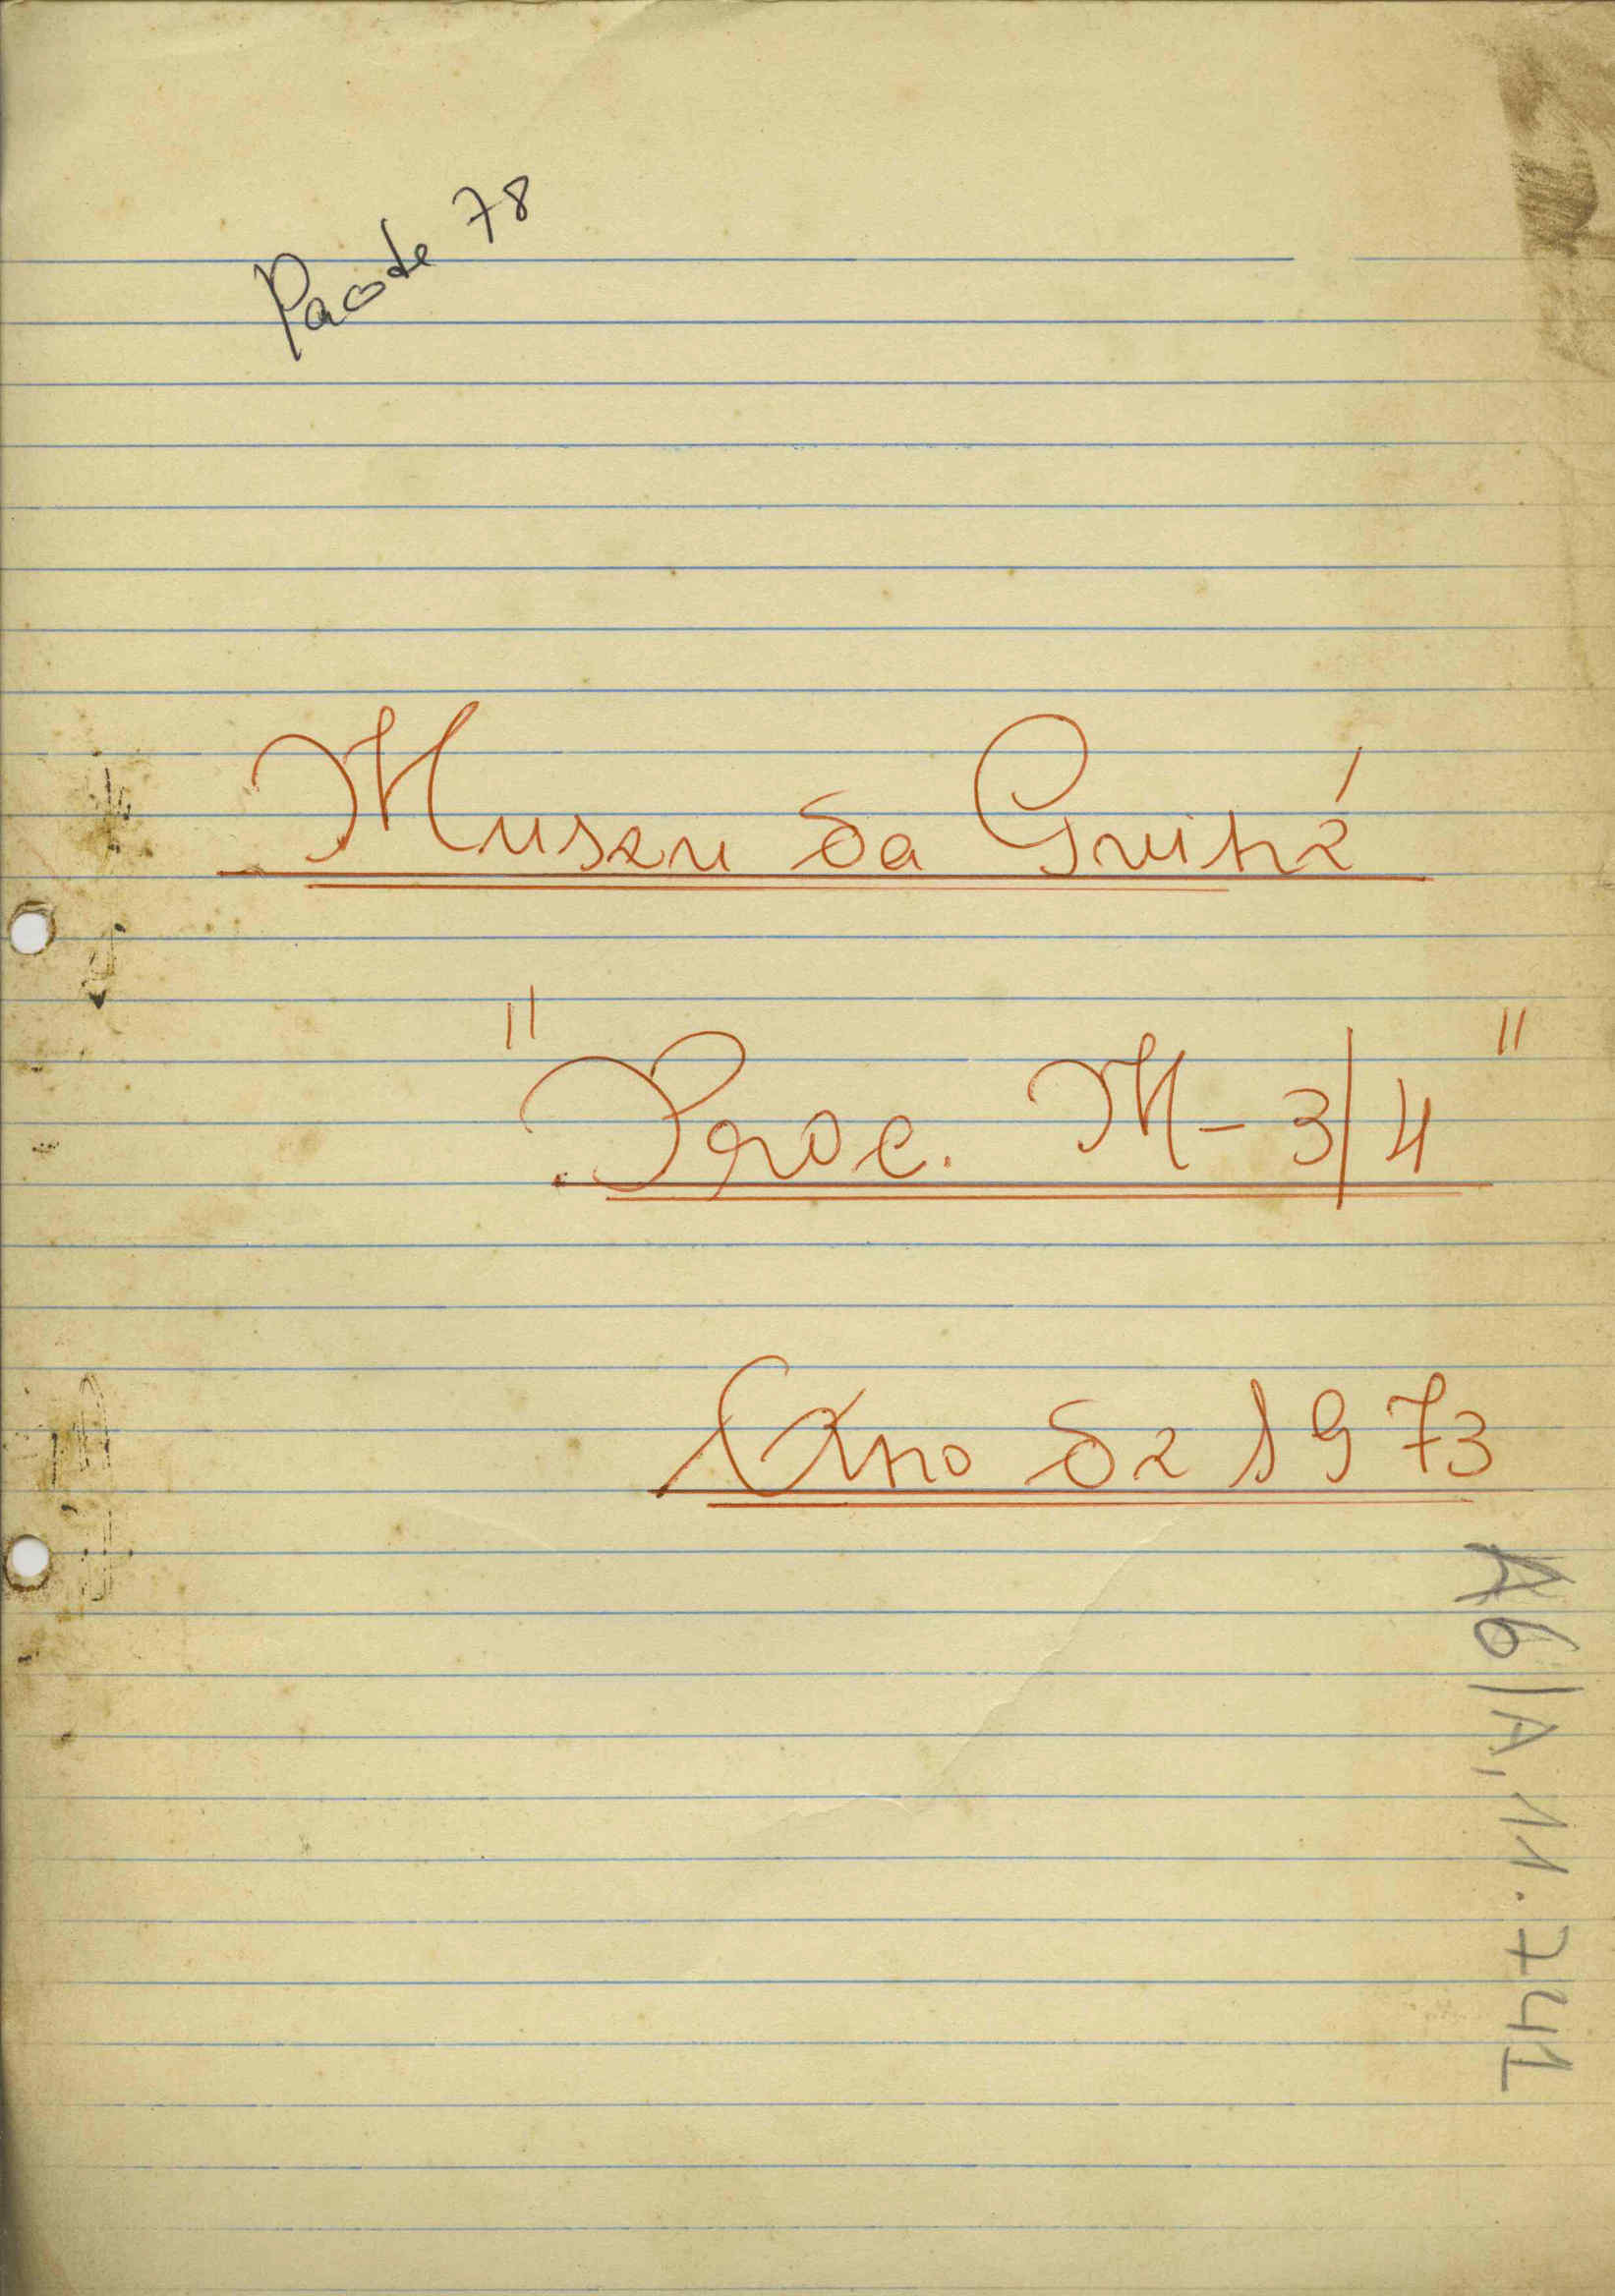 Pacote 78
Museu da Guiné
"Proc. M-3/4"
Ano de 1973
A6/A,11.741